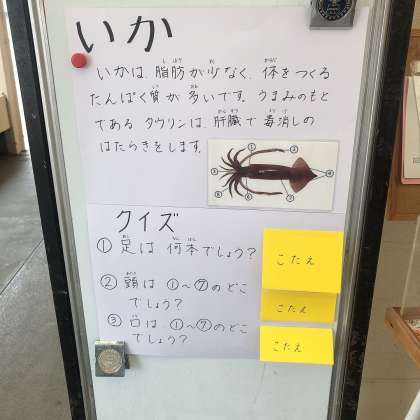 いか
いかは、脂肪が少なく、体をつくる
たんぱく質が多いです。うまみのもと
である タウリンは、肝臓で 毒消しの
はたらきをします。
クイズ
① 足は 何本でしょう?
こたえ
② 頭は ①~⑦のどこ
でしょう?
こたえ
③ 口は ①~⑦のどこ
でしょう?
こたえ